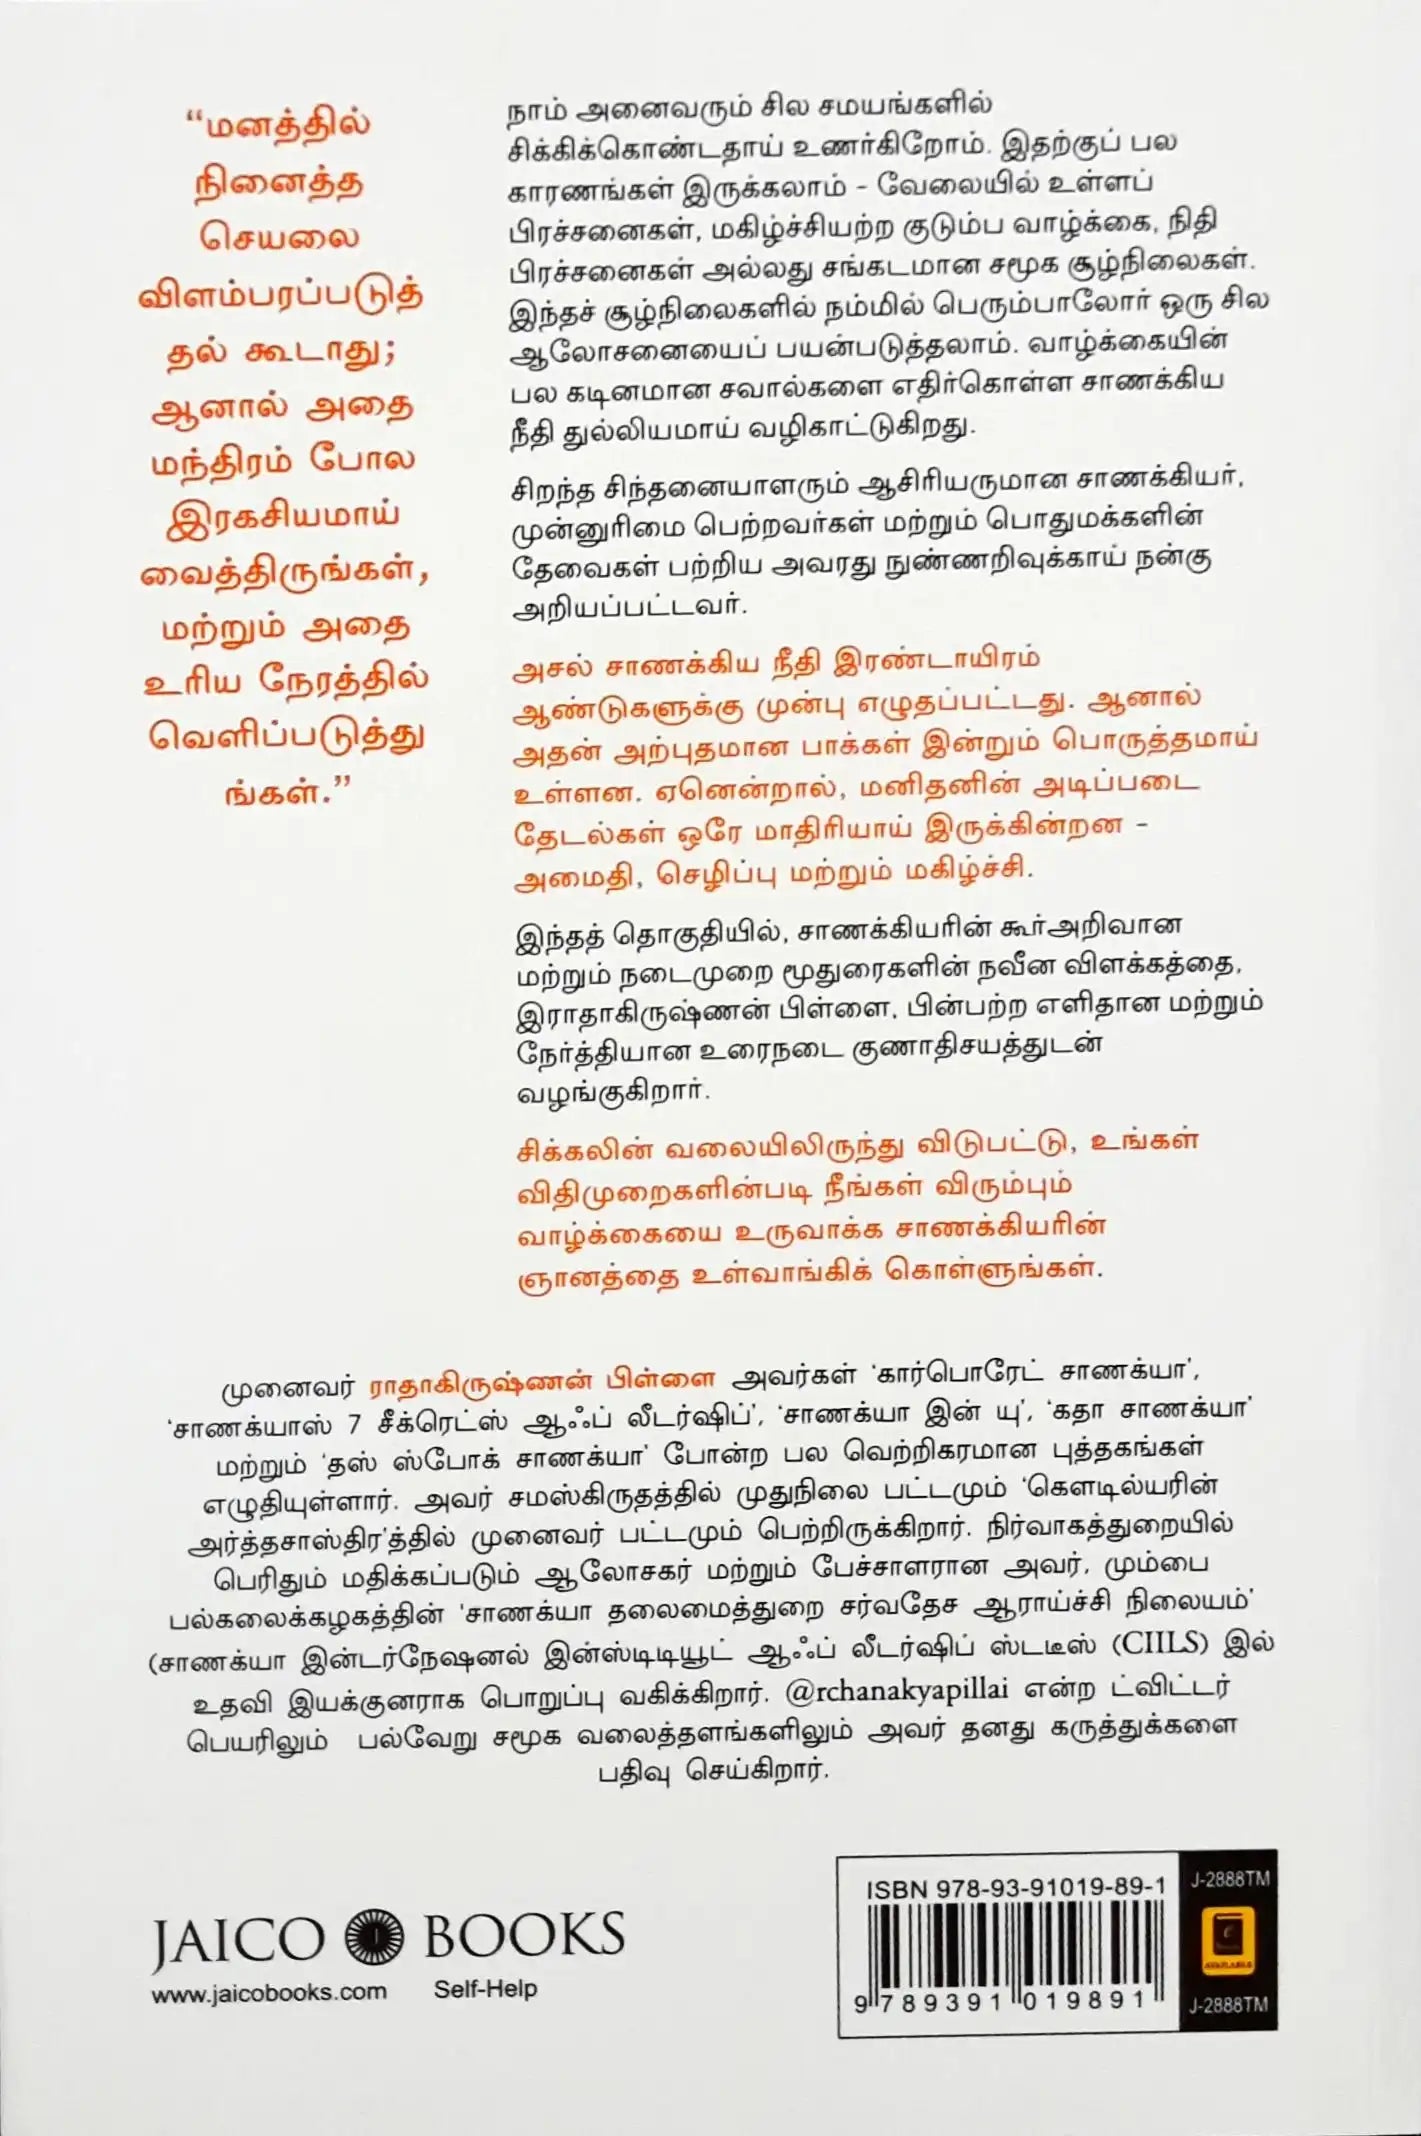 “மனத்தில்
நினைத்த
செயலை
விளம்பரப்படுத்
தல் கூடாது;
ஆனால் அதை
மந்திரம் போல
இரகசியமாய்
வைத்திருங்கள்,
மற்றும் அதை
உரிய நேரத்தில்
வெளிப்படுத்து
ங்கள்.”
நாம் அனைவரும் சில சமயங்களில்
சிக்கிக்கொண்டதாய் உணர்கிறோம். இதற்குப் பல
காரணங்கள் இருக்கலாம் – வேலையில் உள்ளப்
பிரச்சனைகள், மகிழ்ச்சியற்ற குடும்ப வாழ்க்கை, நிதி
பிரச்சனைகள் அல்லது சங்கடமான சமூக சூழ்நிலைகள்.
இந்தச் சூழ்நிலைகளில் நம்மில் பெரும்பாலோர் ஒரு சில
ஆலோசனையைப் பயன்படுத்தலாம். வாழ்க்கையின்
பல கடினமான சவால்களை எதிர்கொள்ள சாணக்கிய
நீதி துல்லியமாய் வழிகாட்டுகிறது.
சிறந்த சிந்தனையாளரும் ஆசிரியருமான சாணக்கியர்,
முன்னுரிமை பெற்றவர்கள் மற்றும் பொதுமக்களின்
தேவைகள் பற்றிய அவரது நுண்ணறிவுக்காய் நன்கு
அறியப்பட்டவர்.
அசல் சாணக்கிய நீதி இரண்டாயிரம்
ஆண்டுகளுக்கு முன்பு எழுதப்பட்டது. ஆனால்
அதன் அற்புதமான பாக்கள் இன்றும் பொருத்தமாய்
உள்ளன. ஏனென்றால், மனிதனின் அடிப்படை
தேடல்கள் ஒரே மாதிரியாய் இருக்கின்றன –
அமைதி, செழிப்பு மற்றும் மகிழ்ச்சி.
இந்தத் தொகுதியில், சாணக்கியரின் கூர்அறிவான
மற்றும் நடைமுறை மூதுரைகளின் நவீன விளக்கத்தை,
இராதாகிருஷ்ணன் பிள்ளை, பின்பற்ற எளிதான மற்றும்
நேர்த்தியான உரைநடை குணாதிசயத்துடன்
வழங்குகிறார்.
சிக்கலின் வலையிலிருந்து விடுபட்டு, உங்கள்
விதிமுறைகளின்படி நீங்கள் விரும்பும்
வாழ்க்கையை உருவாக்க சாணக்கியரின்
ஞானத்தை உள்வாங்கிக் கொள்ளுங்கள்.
முனைவர் ராதாகிருஷ்ணன் பிள்ளை அவர்கள் ‘கார்பொரேட் சாணக்யா’,
‘சாணக்யாஸ் 7 சீக்ரெட்ஸ் ஆஃப் லீடர்ஷிப்’, ‘சாணக்யா இன் யு’, ‘கதா சாணக்யா’
மற்றும் ‘தஸ் ஸ்போக் சாணக்யா’ போன்ற பல வெற்றிகரமான புத்தகங்கள்
எழுதியுள்ளார். அவர் சமஸ்கிருதத்தில் முதுநிலை பட்டமும் ‘கௌடில்யரின்
அர்த்தசாஸ்திர’த்தில் முனைவர் பட்டமும் பெற்றிருக்கிறார். நிர்வாகத்துறையில்
பெரிதும் மதிக்கப்படும் ஆலோசகர் மற்றும் பேச்சாளரான அவர், மும்பை
பல்கலைக்கழகத்தின் ‘சாணக்யா தலைமைத்துறை சர்வதேச ஆராய்ச்சி நிலையம்’
(சாணக்யா இன்டர்நேஷனல் இன்ஸ்டிடியூட் ஆஃப் லீடர்ஷிப் ஸ்டடீஸ் (CIILS) இல்
உதவி இயக்குனராக பொறுப்பு வகிக்கிறார். @rchanakyapillai என்ற ட்விட்டர்
பெயரிலும் பல்வேறு சமூக வலைத்தளங்களிலும் அவர் தனது கருத்துக்களை
பதிவு செய்கிறார்.
JAICO BOOKS
www.jaicobooks.com Self-Help
ISBN 978-93-91019-89-1
9 789391 019891
J-2888TM
e
AVAILABLE
J-2888TM